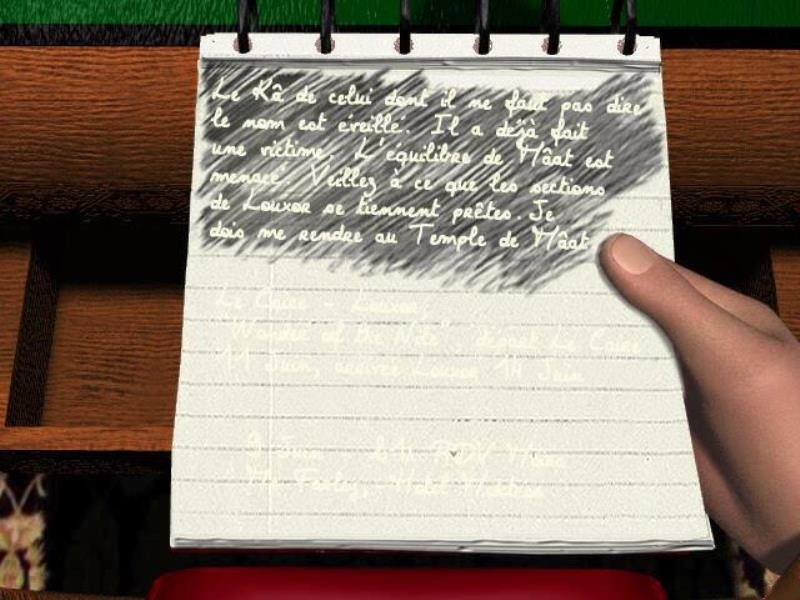 Le Kâ de celui dont il ne faut pas dire
le nom est éveillé. Il a déjà fait
une victime. L'équilibre de Mâat est
menacé. Veillez à ce que les sections
de Louxor se tiennent prêtes. Je
dois me rendre au Temple de Mâat
Le Caire - Louxor
of the Nile", départ Le Caire
11 Juin, arrivée Louxor 14 Juin
Juin RDV